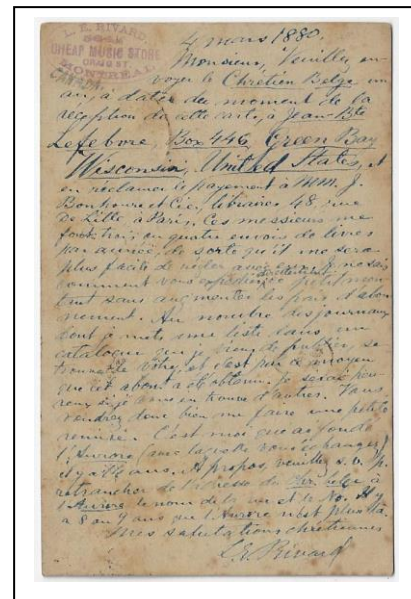 L. E. RIVARD,
CHEAP MUSIC STORE
CRAIG ST
MONTREAL
CANADA.
4 mars 1880.
Monsieur, Veuillez en-
voyer le Chrétien Belge un
an, à dater du moment de la
réception de cette carte, à Jean-Bte
Lefebvre, Box 446, Green Bay
Wisconsin, United States, et
en réclamer le payement à MM. J.
Bonhoure et Cie, libraires, 48, rue
de Lille à Paris. Ces messieurs me
font trois ou quatre envois de livres
par année, de sorte qu'il me sera
plus facile de régler avec eux. Je ne sais
comment vous expédier directement ce petit mon-
tant sans augmenter les frais d'abon-
nement. Au nombre des journaux
dont je mets une liste dans un
catalogue que je viens de publier, se
trouve le vôtre, et c'est par ce moyen
que cet abonné a été obtenu. Je serai heu-
reux si j'en trouve d'autres. Vous
voudrez donc bien me faire une petite
remise. C'est moi qui ai fondé
l'Aurore (avec laquelle vous échangez)
il y a ans. A propos, veuillez s. v. p.
retrancher de l'adresse du Chr. belge à
l'Aurore le nom de la rue et le No. Il y
a 8 ou 9 ans que l'Aurore n'est plus là.
Mes salutations chrétiennes
L. E. Rivard